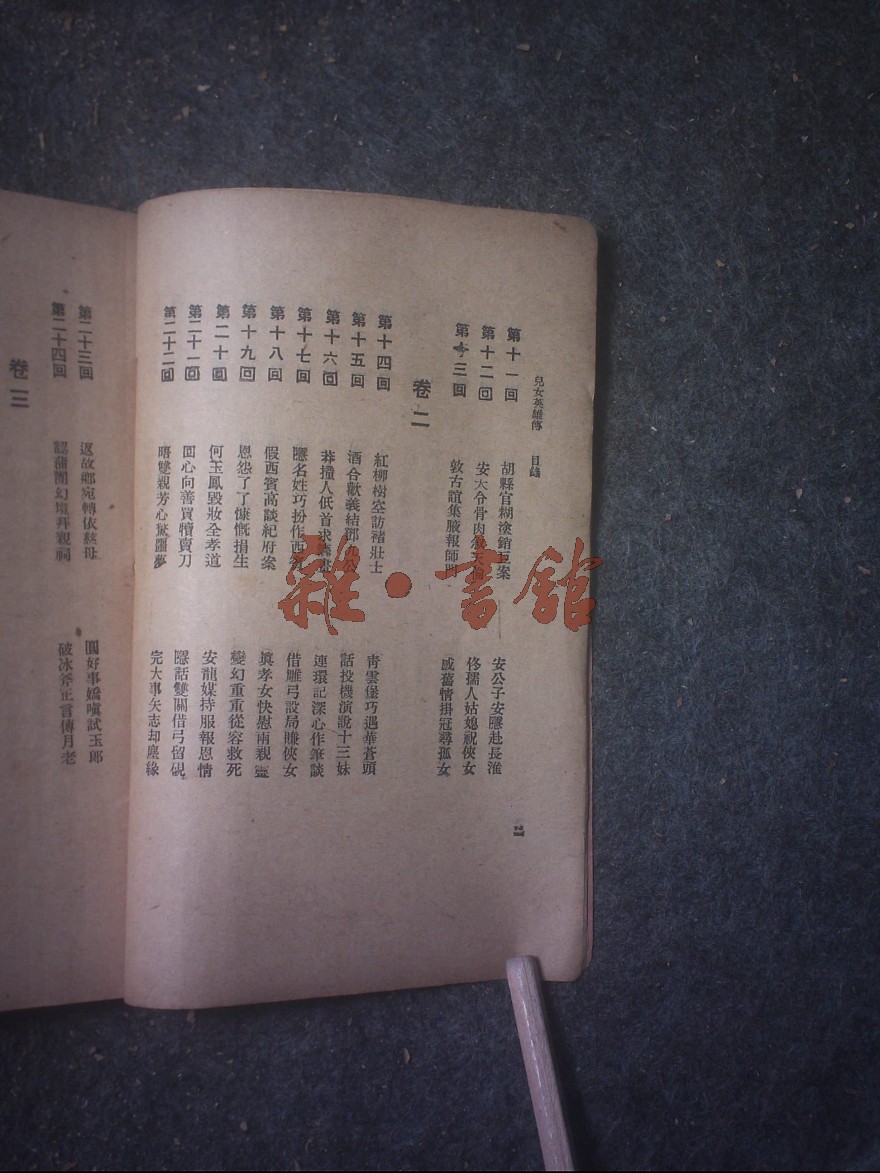 兒女英雄傳 目錄
第十一回 胡縣官糊塗銷巨案 安公子安穩赴長淮
第十二回 安大令骨肉敍天倫 佟孺人姑媳祝俠女
第十三回 敦古誼集腋報師門 感舊情掛冠尋孤女
卷二
第十四回 紅柳樹空訪禇壯士 靑雲堡巧遇華蒼頭
第十五回 酒合歡義結鄧九公 話投機演說十三妹
第十六回 莽撞人低首求籌畫 連環記深心作筆談
第十七回 隱名姓巧扮作西賓 借雕弓設局賺俠女
第十八回 假西賓高談紀府案 眞孝女快慰兩親靈
第十九回 恩怨了了慷慨捐生 變幻重重從容救死
第二十回 何玉鳳毀妝全孝道 安龍媒持服報恩情
第二十一回 回心向善買犢賣刀 隱話雙關借弓留硯
第二十二回 晤雙親芳心驚噩夢 完大事矢志却塵緣
第二十三回 返故鄉宛轉依慈母 圓好事嬌嗔試玉郎
第二十四回 認蒲團幻境拜親祠 破冰斧正言傳月老
卷三
雜·書館